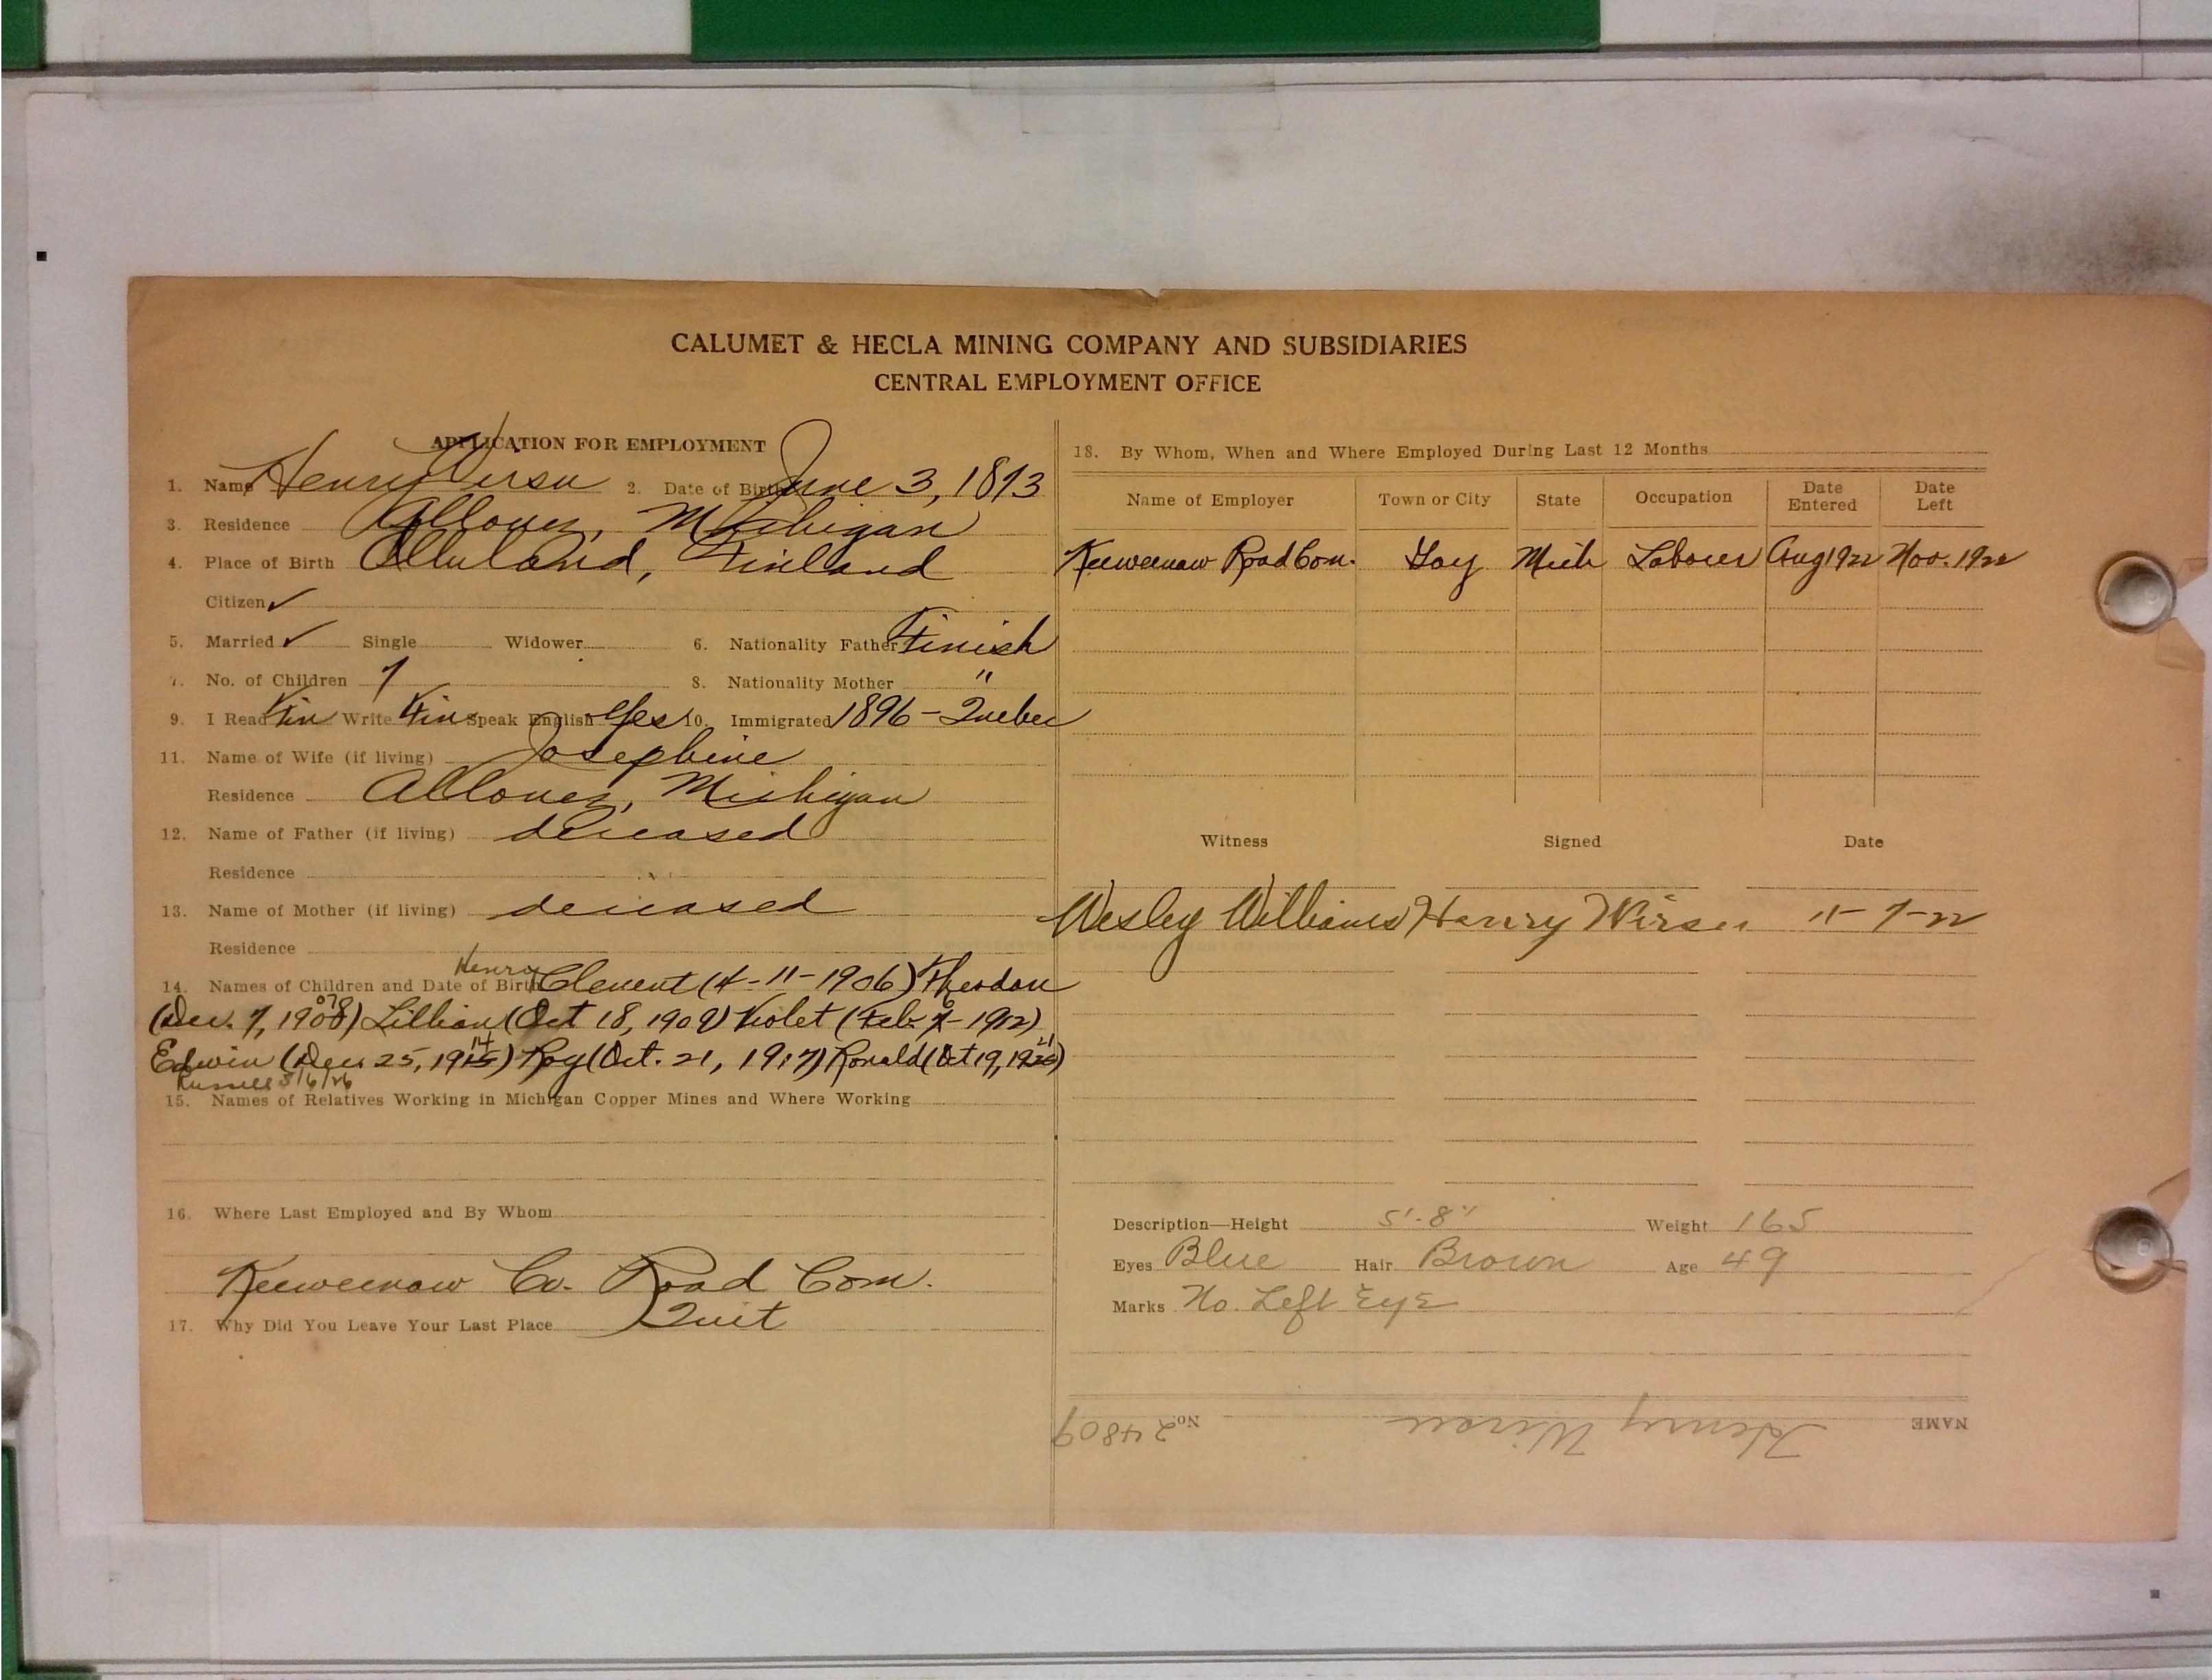 CALUMET & HECLA MINING COMPANY AND SUBSIDIARIES
CENTRAL EMPLOYMENT OFFICE
APPLICATION FOR EMPLOYMENT
1. Name Henry Wirsu 2. Date of Birth June 3, 1873
3. Residence Allouez, Michigan
4. Place of Birth Finland
Citizen ✓
5. Married ✓ Single Widower 6. Nationality Father Finish
7. No. of Children 7 8. Nationality Mother "
9. I Read Fin Write Fin Speak English Yes 10. Immigrated 1896 - Quebec
11. Name of Wife (if living) Josephine
Residence Allouez, Michigan
12. Name of Father (if living) deceased
Residence
13. Name of Mother (if living) deceased
Residence
Henry
14. Names of Children and Date of Birth Clement (4-11-1906) Theodore
(Dec. 7, 1908) Lillian (Oct 18, 1909) Violet (Feb. 1912)
14 21
Edwin (Dec. 25, 1915) Roy (Oct. 21, 1917) Ronald (Oct 19, 1920)
Russell 5/6/26
15. Names of Relatives Working in Michigan Copper Mines and Where Working
16. Where Last Employed and By Whom
Keweenaw Co. Road Com.
17. Why Did You Leave Your Last Place Quit
18. By Whom, When and Where Employed During Last 12 Months
Name of Employer Town or City State Occupation Date Entered Date Left
Keweenaw Road Com. Gay Mich Laborer Aug 1922 Nov. 1922
Witness Signed Date
Wesley Williams Henry Wirsu 11-7-22
Description—Height 5'-8" Weight 165
Eyes Blue Hair Brown Age 49
Marks No Left Eye
NAME Henry Wirsu No. 24809